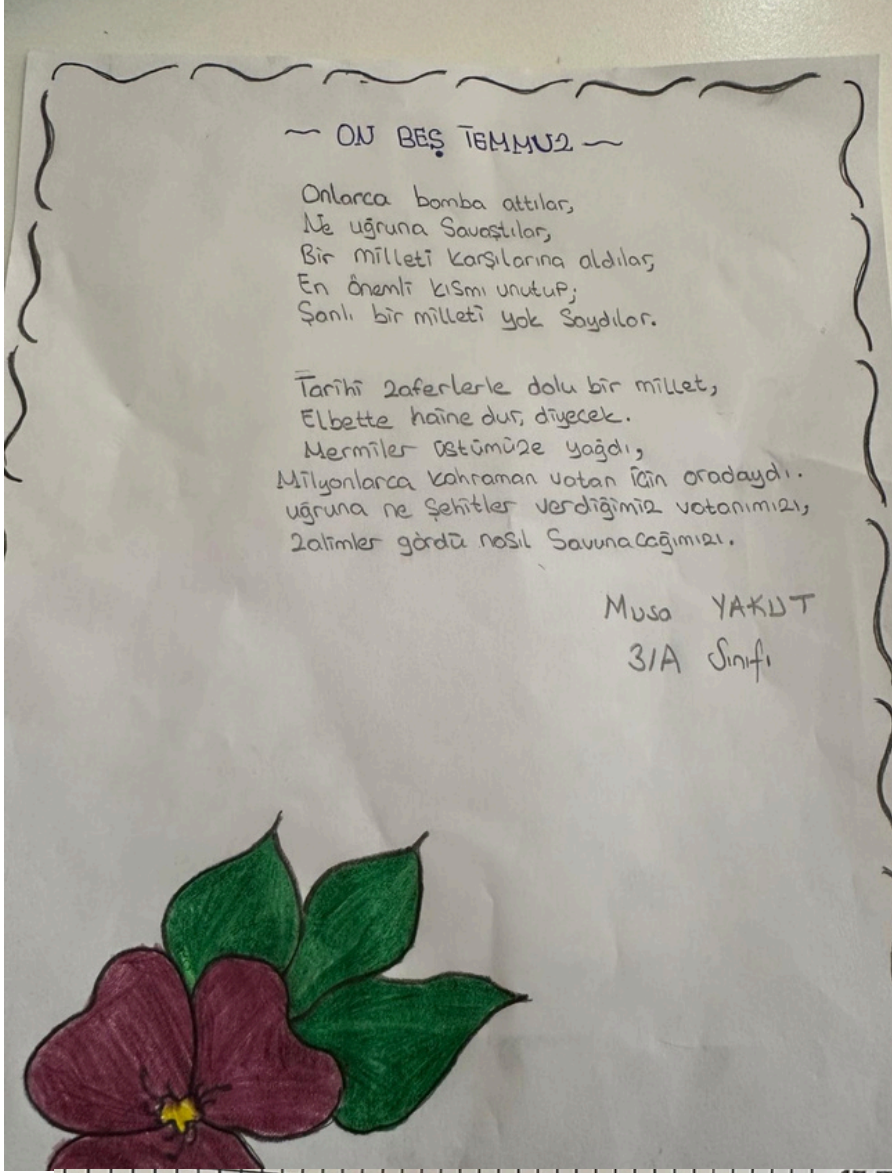 ~ ON BEŞ TEMMUZ ~
Onlarca bomba attılar,
Ne uğruna Savaştılar,
Bir milleti karşılarına aldılar,
En önemli kısmı unutup;
Şanlı bir milleti yok Saydılar.
Tarihi zaferlerle dolu bir millet,
Elbette haine dur, diyecek.
Mermiler üstümüze yağdı,
Milyonlarca kahraman vatan için oradaydı.
uğruna ne Şehitler verdiğimiz vatanımızı,
zalimler gördü nasıl Savunacağımızı.
Musa YAKUT
3/A Sınıfı